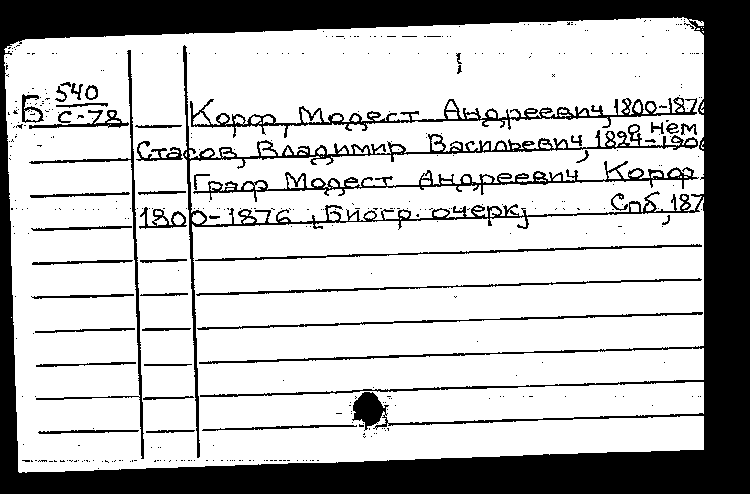 Б 540
С-78
Корф, Модест Андреевич, 1800-1876
о нем
Стасов, Владимир Васильевич, 1824-1906
Граф Модест Андреевич Корф.
1800-1876 [Биогр. очерк] Спб, 187